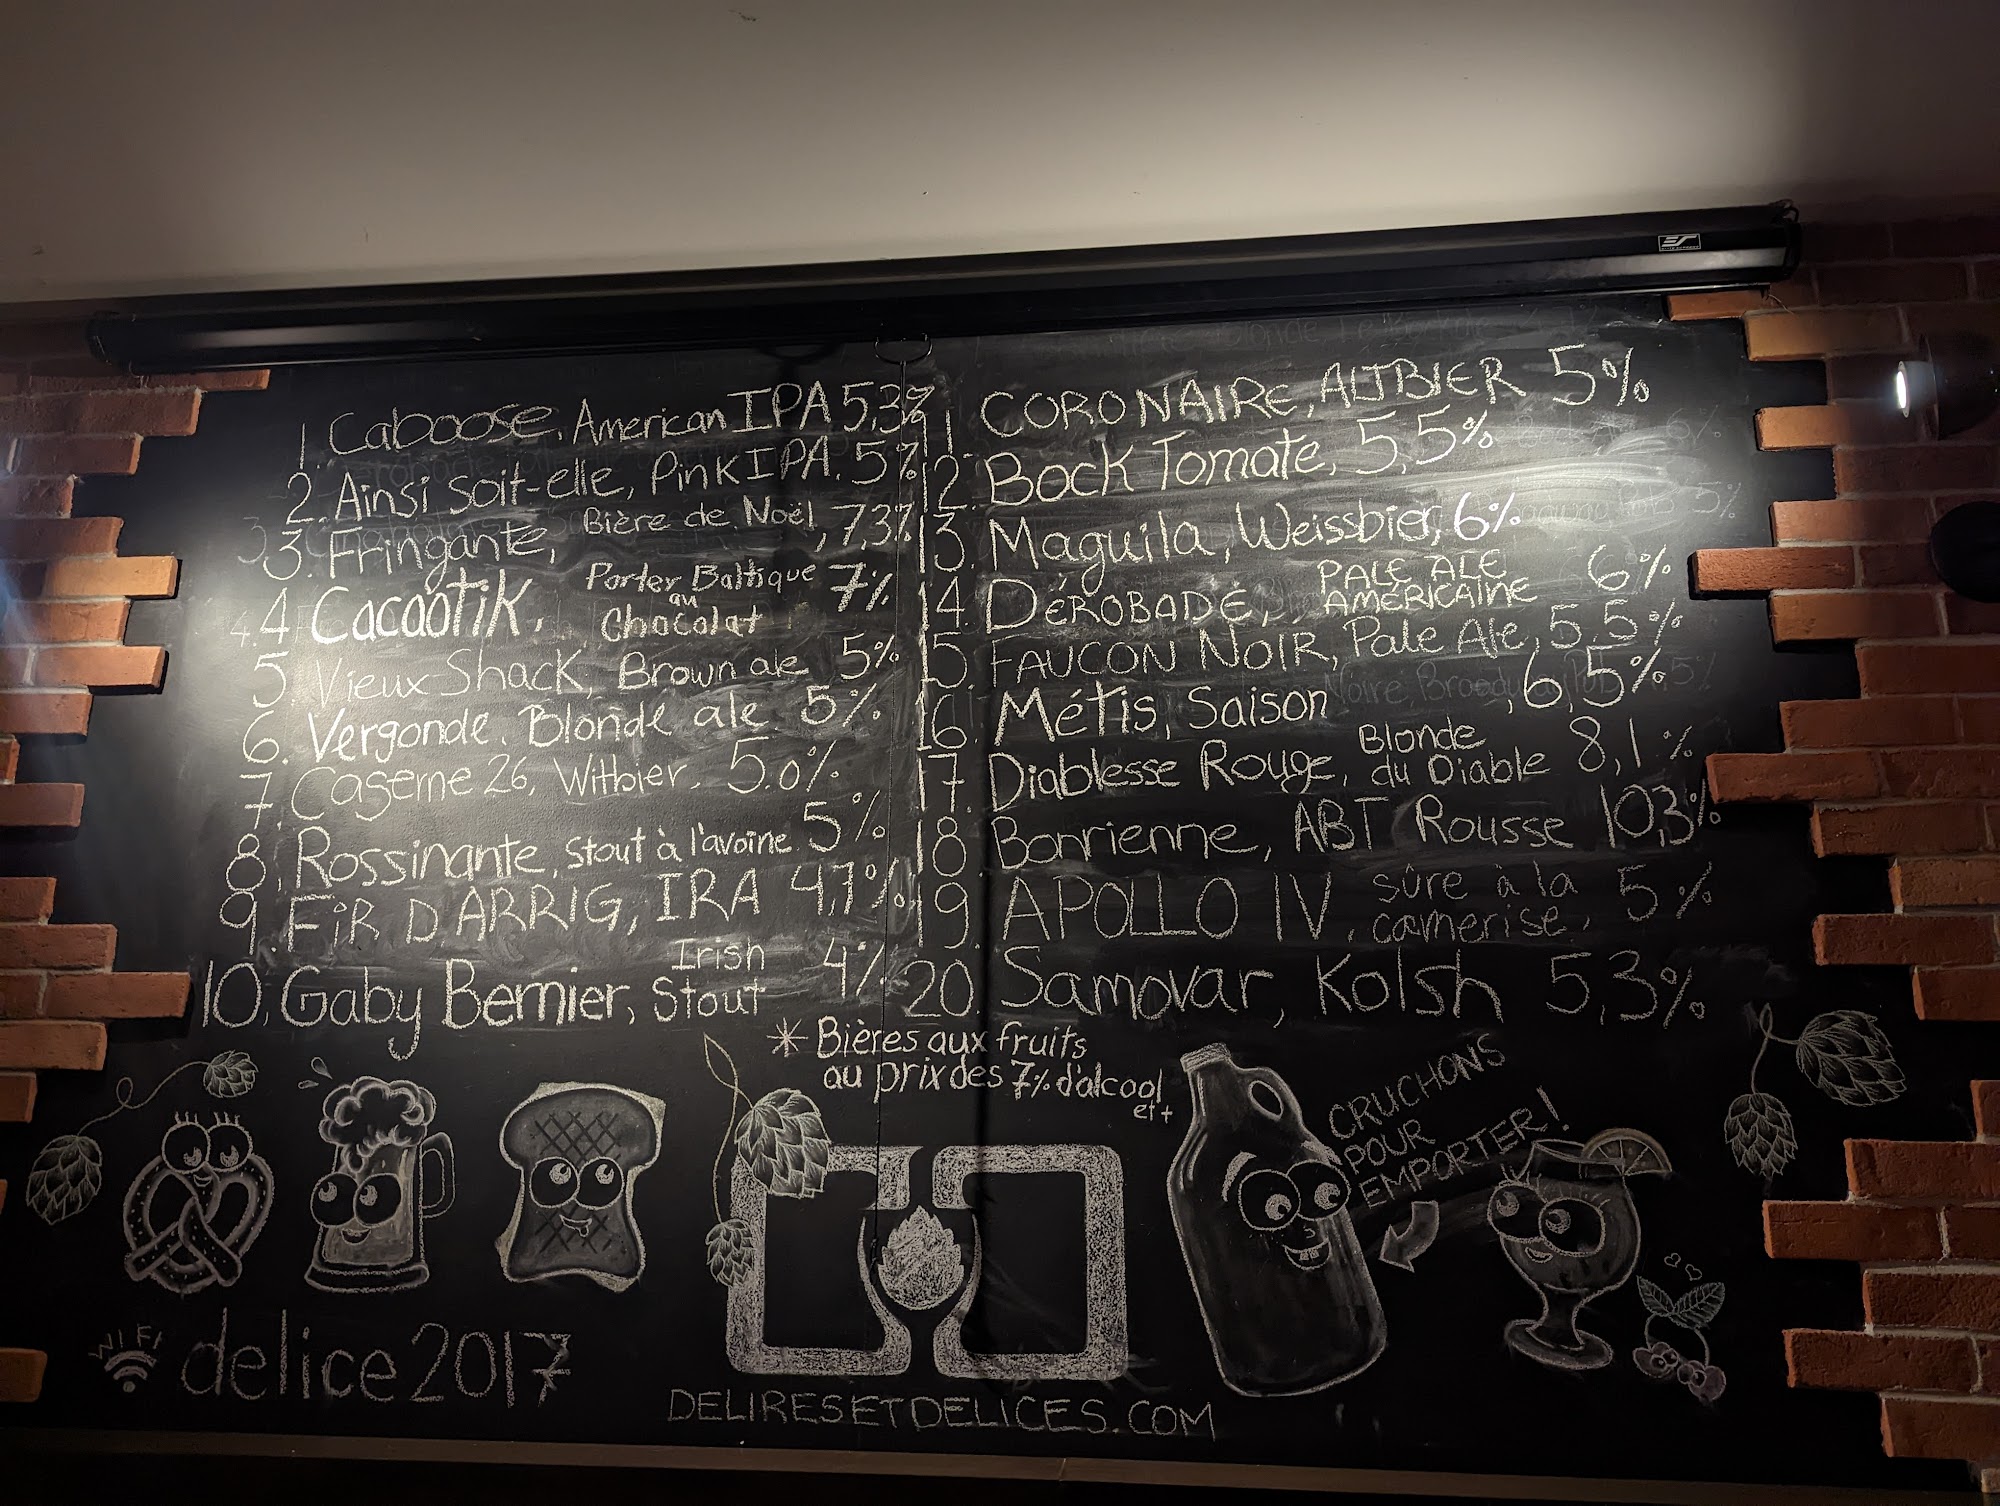 1. Caboose, American IPA 5,3%
2. Ainsi soit-elle, Pink IPA. 5%
3. Fringante, Bière de Noël, 7,3%
4. Cacaotik, Porter Baltique au Chocolat 7%
5. Vieux Shack, Brown ale 5%
6. Vergonde, Blonde ale 5%
7. Caserne 26, Witbier, 5.0%
8. Rossinante, Stout à l'avoine 5%
9. FiR D'ARRIG, IRA 4,7%
10. Gaby Bernier, Irish Stout 4%
11. CORONAIRE, ALTBIER 5%
12. Bock Tomate, 5,5%
13. Maguila, Weissbier, 6%
14. DÉROBADE, PALE ALE AMÉRICAINE 6%
15. FAUCON NOIR, Pale Ale, 5,5%
16. Métis, Saison, 6,5%
17. Diablesse Rouge, Blonde du Diable 8,1%
18. Bonrienne, ABT Rousse 10,3%
19. APOLLO IV, sûre à la camerise, 5%
20. Samovar, Kolsh 5,3%
* Bières aux fruits
au prix des 7% d'alcool
et +
CRUCHONS
POUR
EMPORTER!
WIFI
delice2017
DELIRESETDELICES.COM